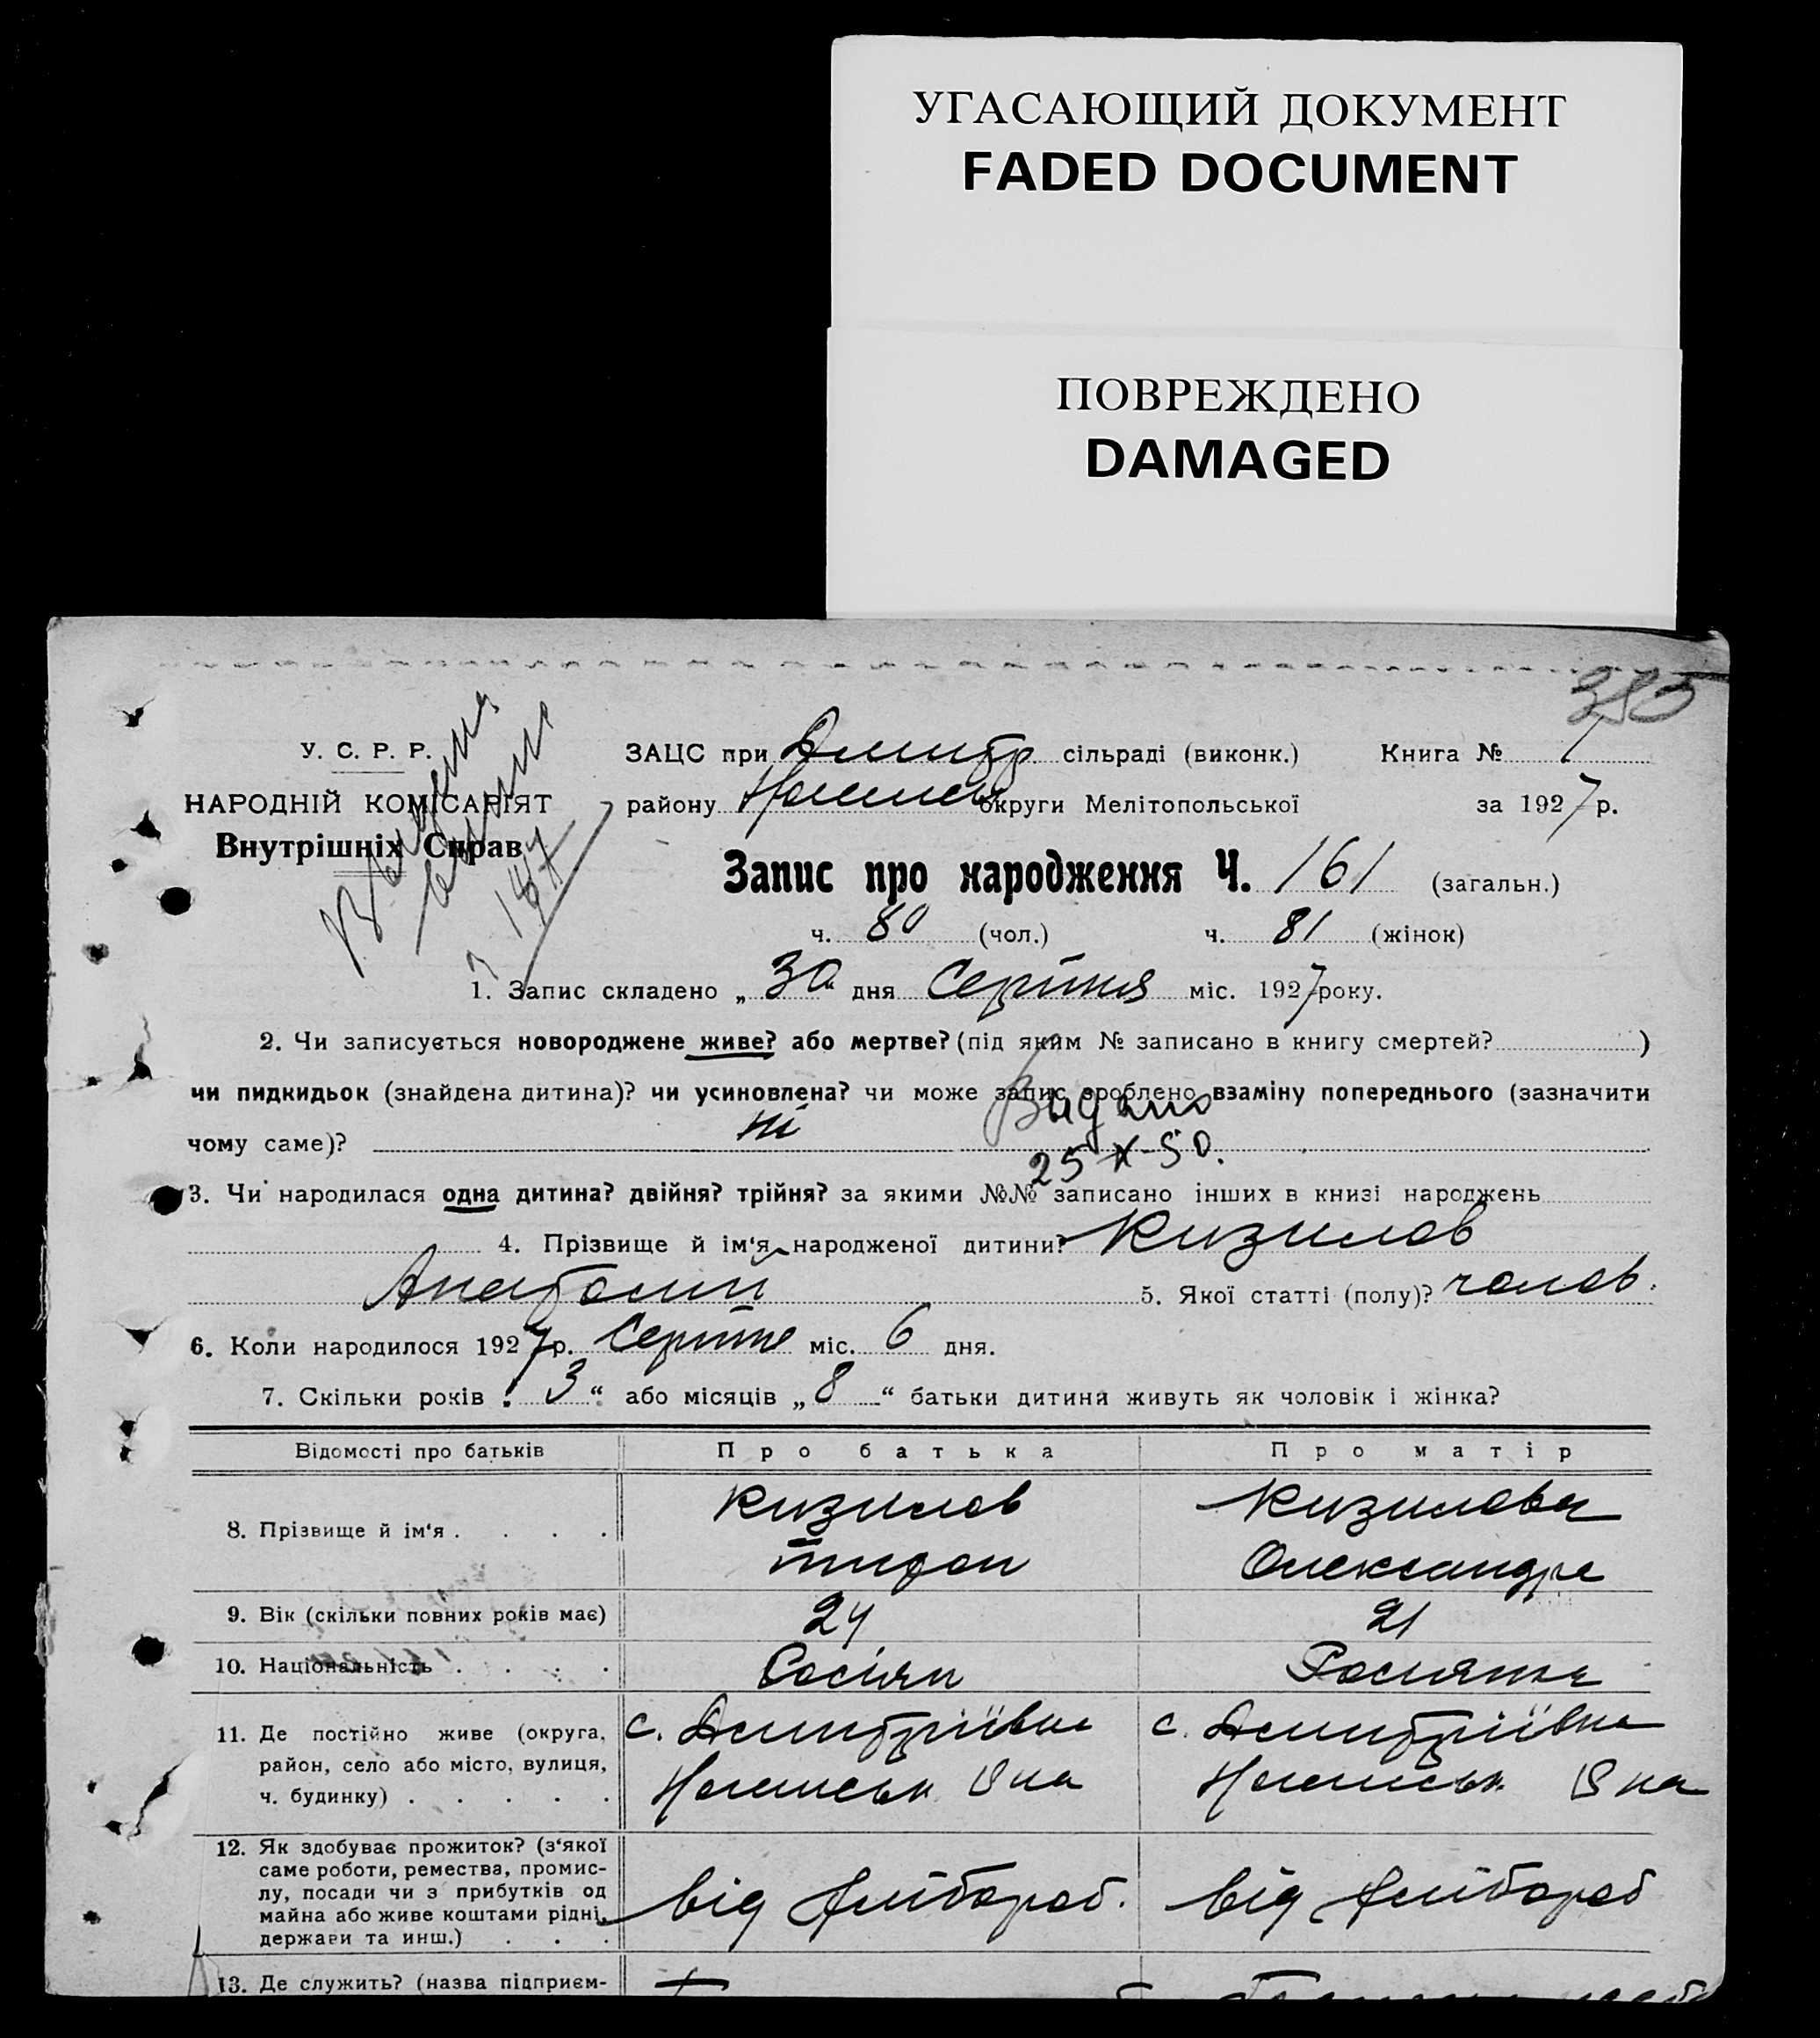 УГАСАЮЩИЙ ДОКУМЕНТ
FADED DOCUMENT
ПОВРЕЖДЕНО
DAMAGED
385
У. С. Р. Р.
НАРОДНІЙ КОМІСАРІЯТ
Внутрішніх Справ
ЗАЦС при Дмитр сільраді (виконк.) Книга № 1
району округи Мелітопольської за 1927 р.
Запис про народження Ч. 161 (загальн.)
ч. 80 (чол.) ч. 81 (жінок)
1. Запис складено „30“ дня Серпня міс. 1927 року.
2. Чи записується новороджене живе? або мертве? (під яким № записано в книгу смертей? )
чи пидкидьок (знайдена дитина)? чи усиновлена? чи може запис зроблено взаміну попереднього (зазначити
чому саме)? ні
Видано
25 X-50.
3. Чи народилася одна дитина? двійня? трійня? за якими №№ записано інших в книзі народжень
4. Прізвище й ім‘я народженої дитини? Кизилов
Анатолий 5. Якої статті (полу)? чолов.
6. Коли народилося 1927 р. Серпня міс. 6 дня.
7. Скільки років „3“ або місяців „8“ батьки дитини живуть як чоловік і жінка?
Відомості про батьків Про батька Про матір
8. Прізвище й ім‘я . . . . Кизилов Кизилова
Олександра
9. Вік (скільки повних років має) 24 21
10. Національність . . . . Росіян Росиянка
11. Де постійно живе (округа, с. Дмитріївка с. Дмитріївка
район, село або місто, вулиця,
ч. будинку) . . . . .
12. Як здобуває прожиток? (з‘якої
саме роботи, ремества, промис-
лу, посади чи з прибутків од
майна або живе коштами рідні, від хлібороб. від хлібороб
держави та инш.) . . .
13. Де служить? (назва підприєм-